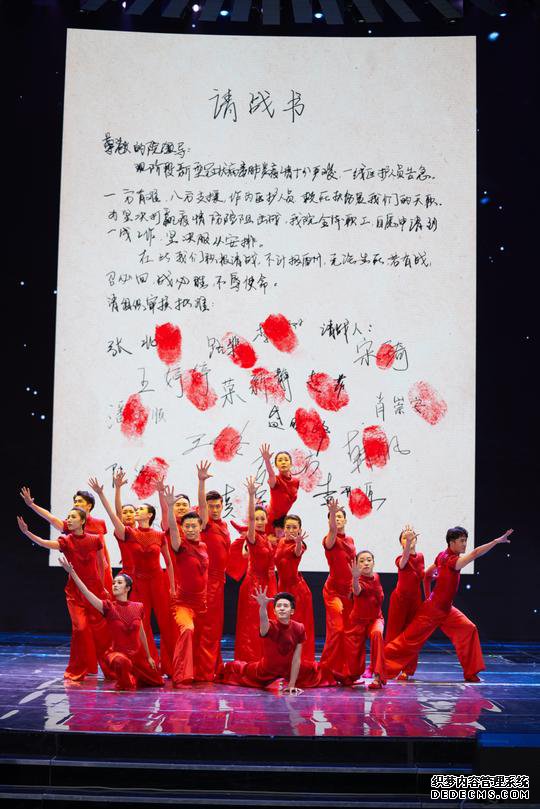 请战书
尊敬的院领导:
现阶段新型冠状病毒肺炎疫情十分严峻,一线医护人员告急。
一方有难,八方支援,作为医护人员 救死扶伤是我们的天职,
为坚决打赢疫情防控阻击战,我院全体职工,自愿申请到
一线工作,坚决服从安排。
在此我们积极请战,不计报酬,无论生死,若有战,
召必回,战必胜,不辱使命。
请组织审核批准:
请战人:
张
宋琦
王婷婷 荣新静
潘 顺
肖崇
王
袁
织梦内容管理系统
DEDECMS.COM